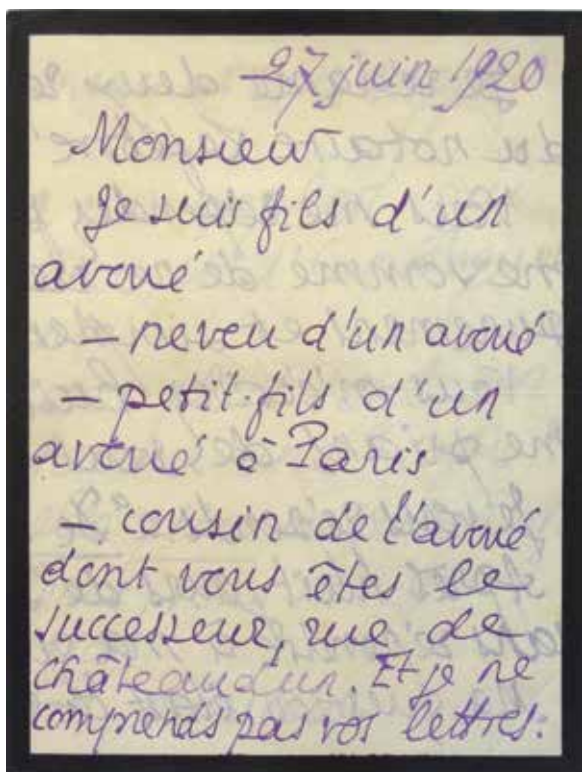 27 juin 1920
Monsieur
Je suis fils d'un
avoué
– neveu d'un avoué
– petit-fils d'un
avoué à Paris
– cousin de l'avoué
dont vous êtes le
successeur, rue de
châteaudun. Et je ne
comprends pas vos lettres.